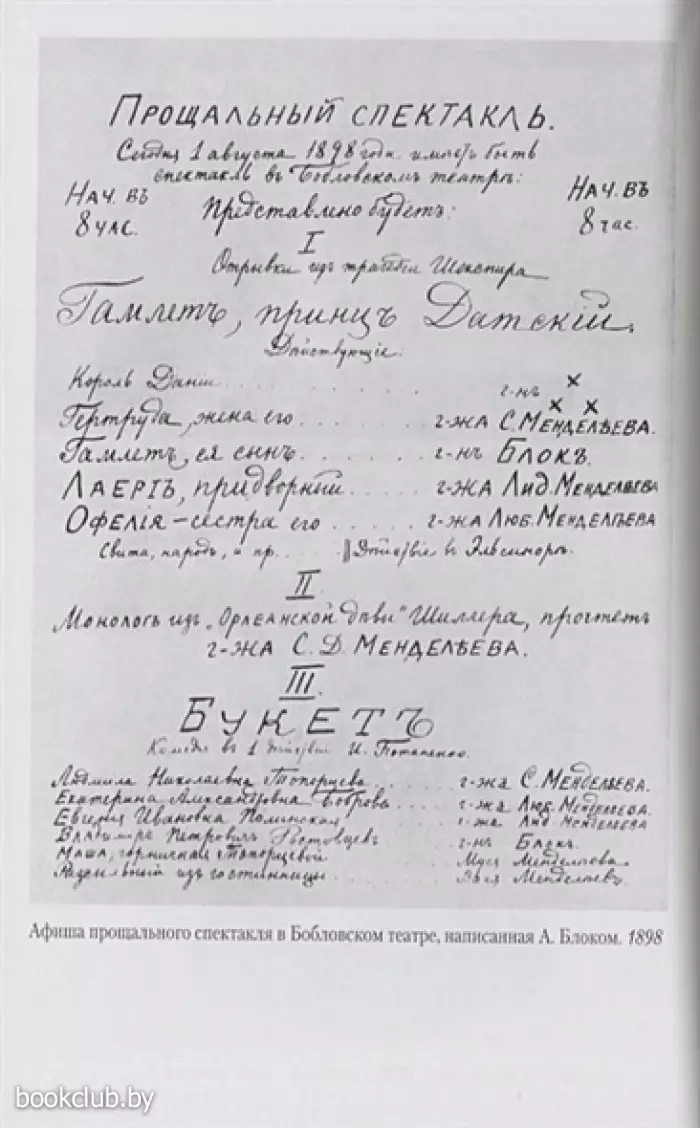 Прощальный спектакль.
Сегодня 1 августа 1898 года имѣетъ быть
спектакль въ Бобловскомъ театрѣ:
Нач. въ 8 час.
Представлено будетъ:
Нач. въ 8 час.
I
Отрывки изъ трагедіи Шекспира
Гамлетъ, принцъ Датскій.
Дѣйствующіе:
Король Даніи . . . . . . . г-нъ x x x
Гертруда, жена его . . . . . г-жа С. Менделѣева.
Гамлетъ, ея сынъ . . . . . . г-нъ Блокъ.
Лаертъ, придворный . . . . . г-жа Лид. Менделѣева
Офелія – сестра его . . . . г-жа Люб. Менделѣева
Свита, народъ, и пр. . . Дѣйствіе въ Эльсинорѣ.
II
Монологъ изъ „Орлеанской дѣвы" Шиллера, прочтетъ
г-жа С. Д. Менделѣева.
III.
Букетъ
Комедія въ 1 дѣйствіи И. Потапенко.
Людмила Николаевна Топорцева . . . г-жа С. Менделѣева.
Екатерина Александровна Боброва . . . г-жа Люб. Менделѣева.
Евгенія Ивановна Полинская . . . г-жа Лид. Менделѣева
Владиміръ Петровичъ Ростовцевъ . . . г-нъ Блокъ.
Маша, горничная Топорцевой . . . Муся Менделѣева.
изъ гостинницы . . . Вася Менделѣевъ.
Афиша прощального спектакля в Бобловском театре, написанная А. Блоком. 1898
bookclub.by